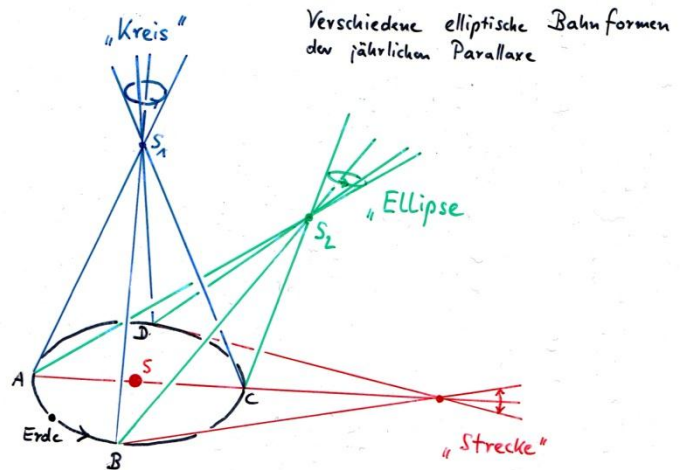 Verschiedene elliptische Bahnformen
der jährlichen Parallaxe
„Kreis"
S1
S2
„Ellipse
D
S
A
C
Erde
B
„Strecke"